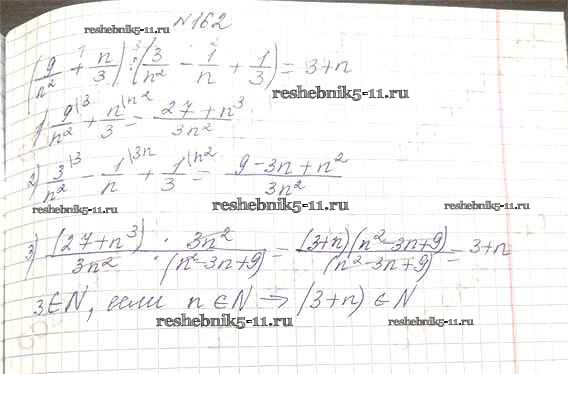 №162
reshebnik5-11.ru
(9/n² + n/3) : (3/n² - 1/n + 1/3) = 3+n
reshebnik5-11.ru
1) 9\3/n² + n\n²/3 = 27+n³/3n²
2) 3\3/n² - 1\3n/n + 1\n²/3 = 9-3n+n²/3n²
reshebnik5-11.ru
reshebnik5-11.ru
reshebnik5-11.ru
3) (27+n³)/3n² · 3n²/(n²-3n+9) = (3+n)(n²-3n+9)/(n²-3n+9) = 3+n
3∈N, если n∈N → (3+n)∈N
reshebnik5-11.ru
reshebnik5-11.ru